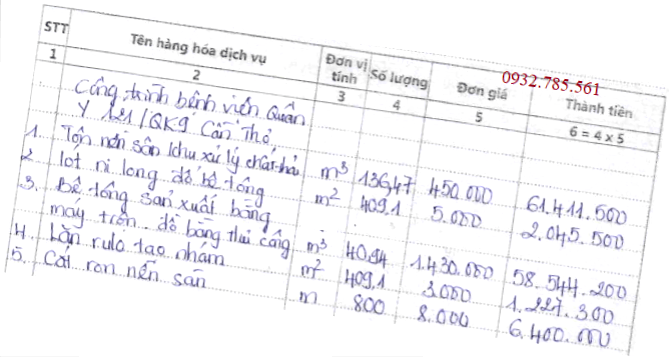 STT Tên hàng hóa dịch vụ Đơn vị tính Số lượng Đơn giá Thành tiền
0932.785.561
1 2 3 4 5 6 = 4 x 5
Công trình bệnh viện Quân
Y 121/QK9 Cần Thơ
1. Tôn nền sân khu xử lý chất thải m³ 136,47 450.000 61.411.500
2 lót ni long đổ bê tông m² 409.1 5.000 2.045.500
3. Bê tông sản xuất bằng
máy trộn đổ bằng thủ công m³ 40,94 1.430.000 58.544.200
4. Lăn rulo tạo nhám m² 409,1 3.000 1.227.300
5. Cắt ron nền sân m 800 8.000 6.400.000